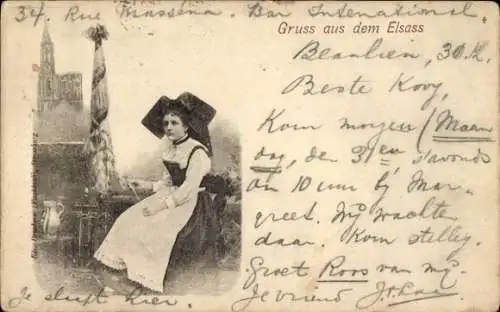 34 Rue Massena. Bar International.
Gruss aus dem Elsass
Beaulieu, 30.
Beste Kooy,
Kom morgen (Maan
dag, den 31en, s'avonds
an 10 uur bij Mar-
greet. Wij wachten
daar. Kom stellig.
Groet Roos van mij.
Je vriend
Je slaapt hier.